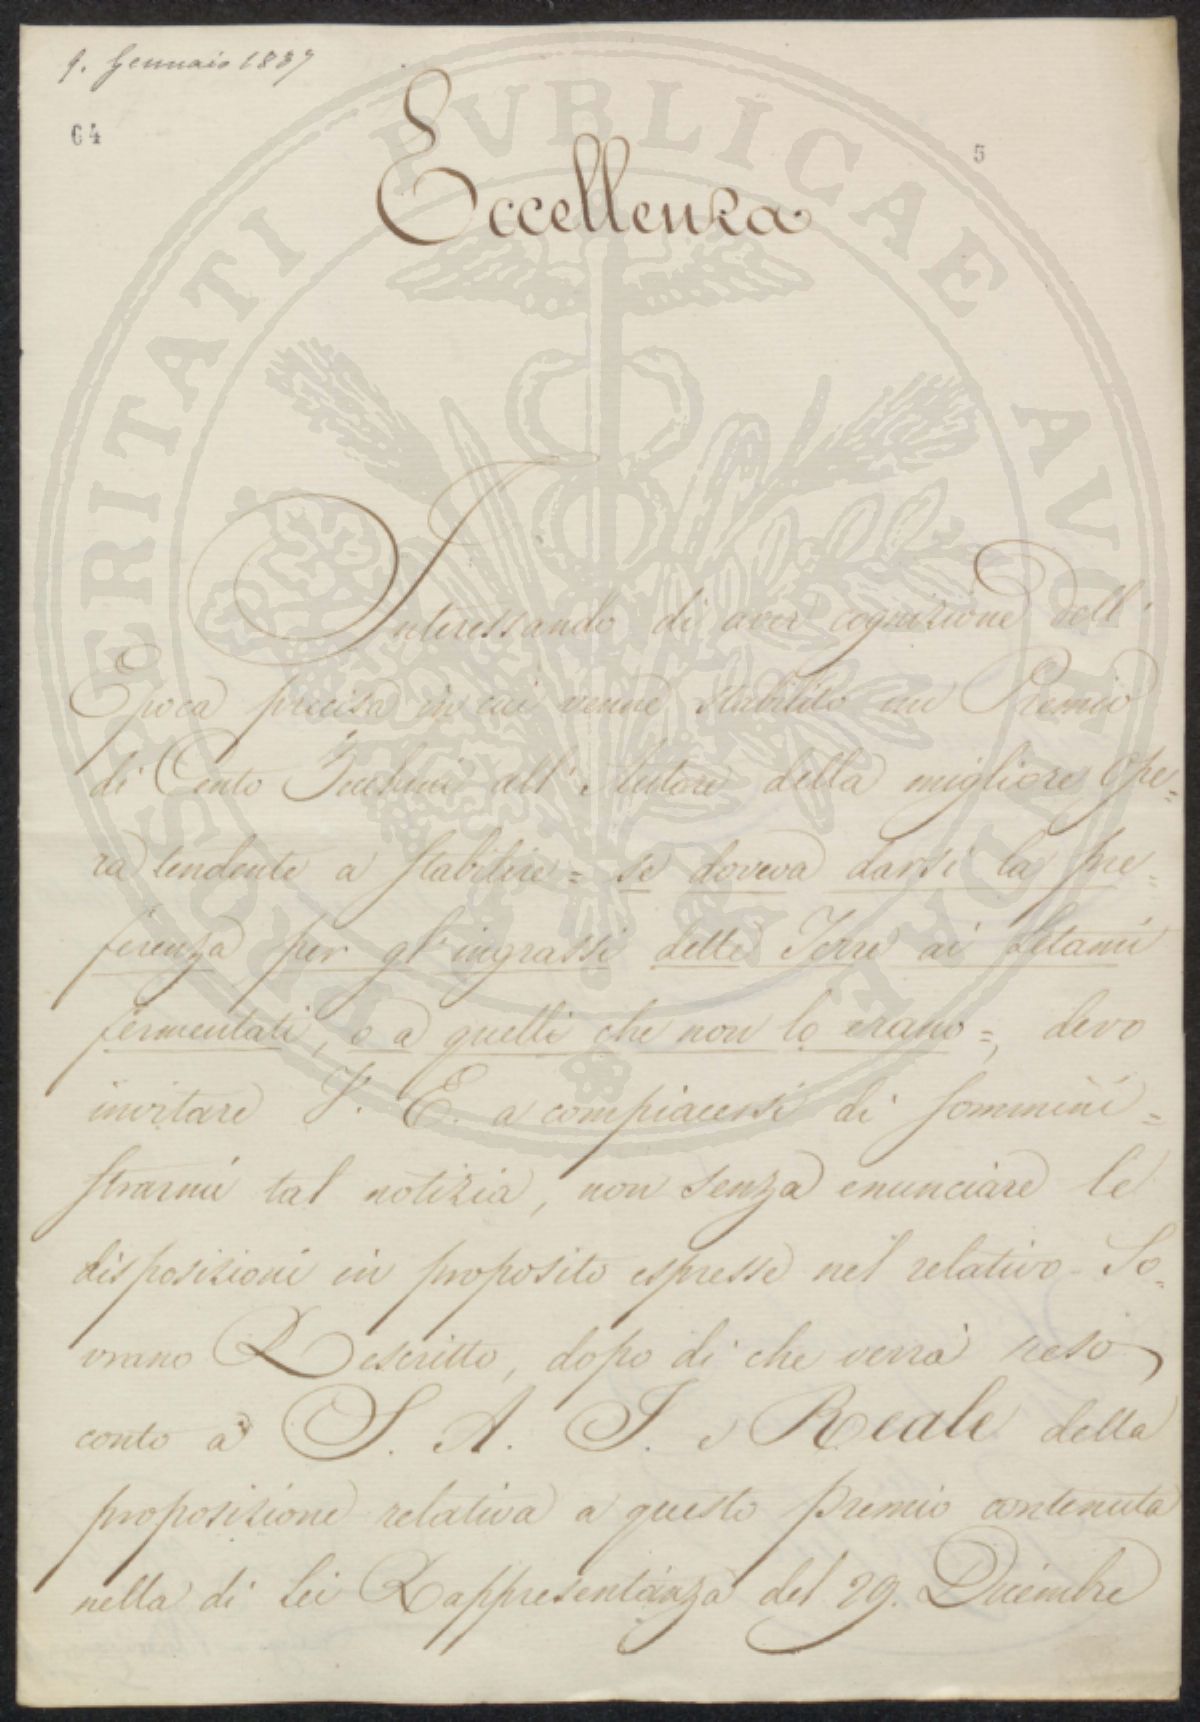 9. Gennaio 1837
64
5
Eccellenza
Interessando di aver cognizione dell'
Epoca precisa in cui venne stabilito un Premio
di Cento Zecchini all'Autore della migliore Ope=
ra tendente a stabilire = se doveva darsi la pre=
ferenza per gl'ingrassi delle Terre ai Letami
fermentati, o a quelli che non lo erano =, devo
invitare V. E. a compiacersi di sommini=
strarmi tal notizia, non senza enunciare le
disposizioni in proposito espresse nel relativo So=
vrano Rescritto, dopo di che verrà reso
conto a S. A. I. e Reale della
proposizione relativa a questo Premio contenuta
nella di Lei Rappresentanza del 29. Dicembre
PROSPERITATI PVBLICAE AVGENDAE